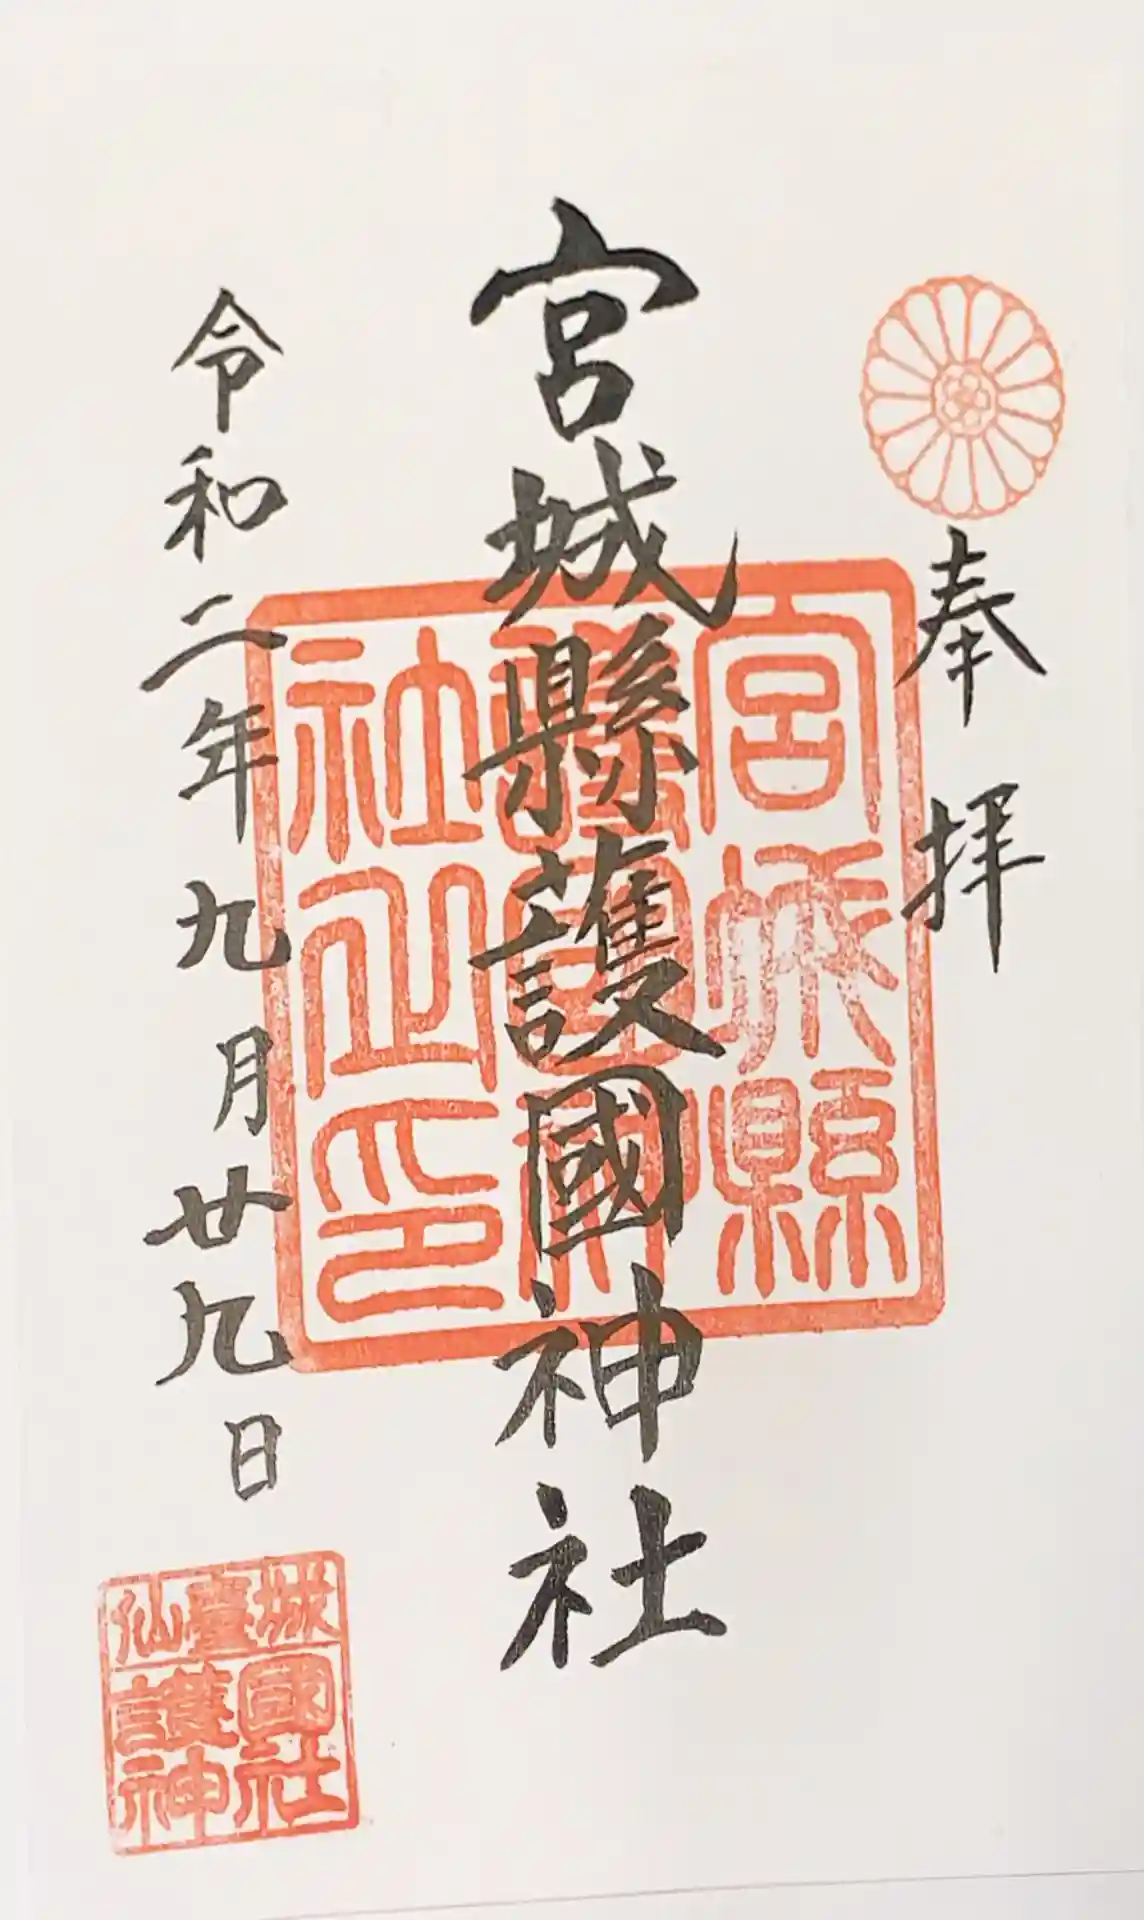 奉拝
宮城縣護國神社
令和二年九月廿九日
宮城縣
護國神
社之印
仙臺城
護國
神社